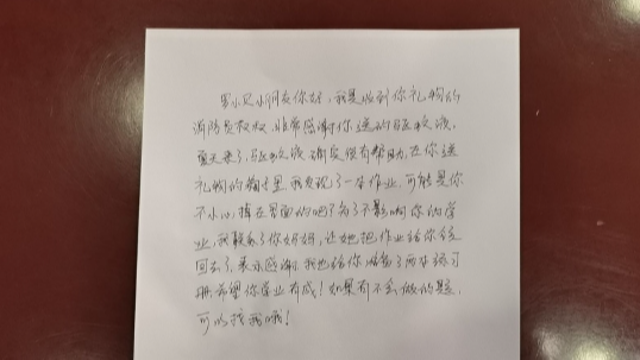 罗小贝小朋友你好，我是收到你礼物的
消防员叔叔，非常感谢你送的驱蚊液。
夏天来了，驱蚊液确实很有帮助，在你送
礼物的箱子里我发现了一本作业，可能是你
不小心掉在里面的吧？为了不影响你的学
业，我联系了你妈妈，让她把作业给你带
回去了，表示感谢，我也给你准备了两本练习
册，希望你学业有成！如果有不会做的题，
可以找我哦！